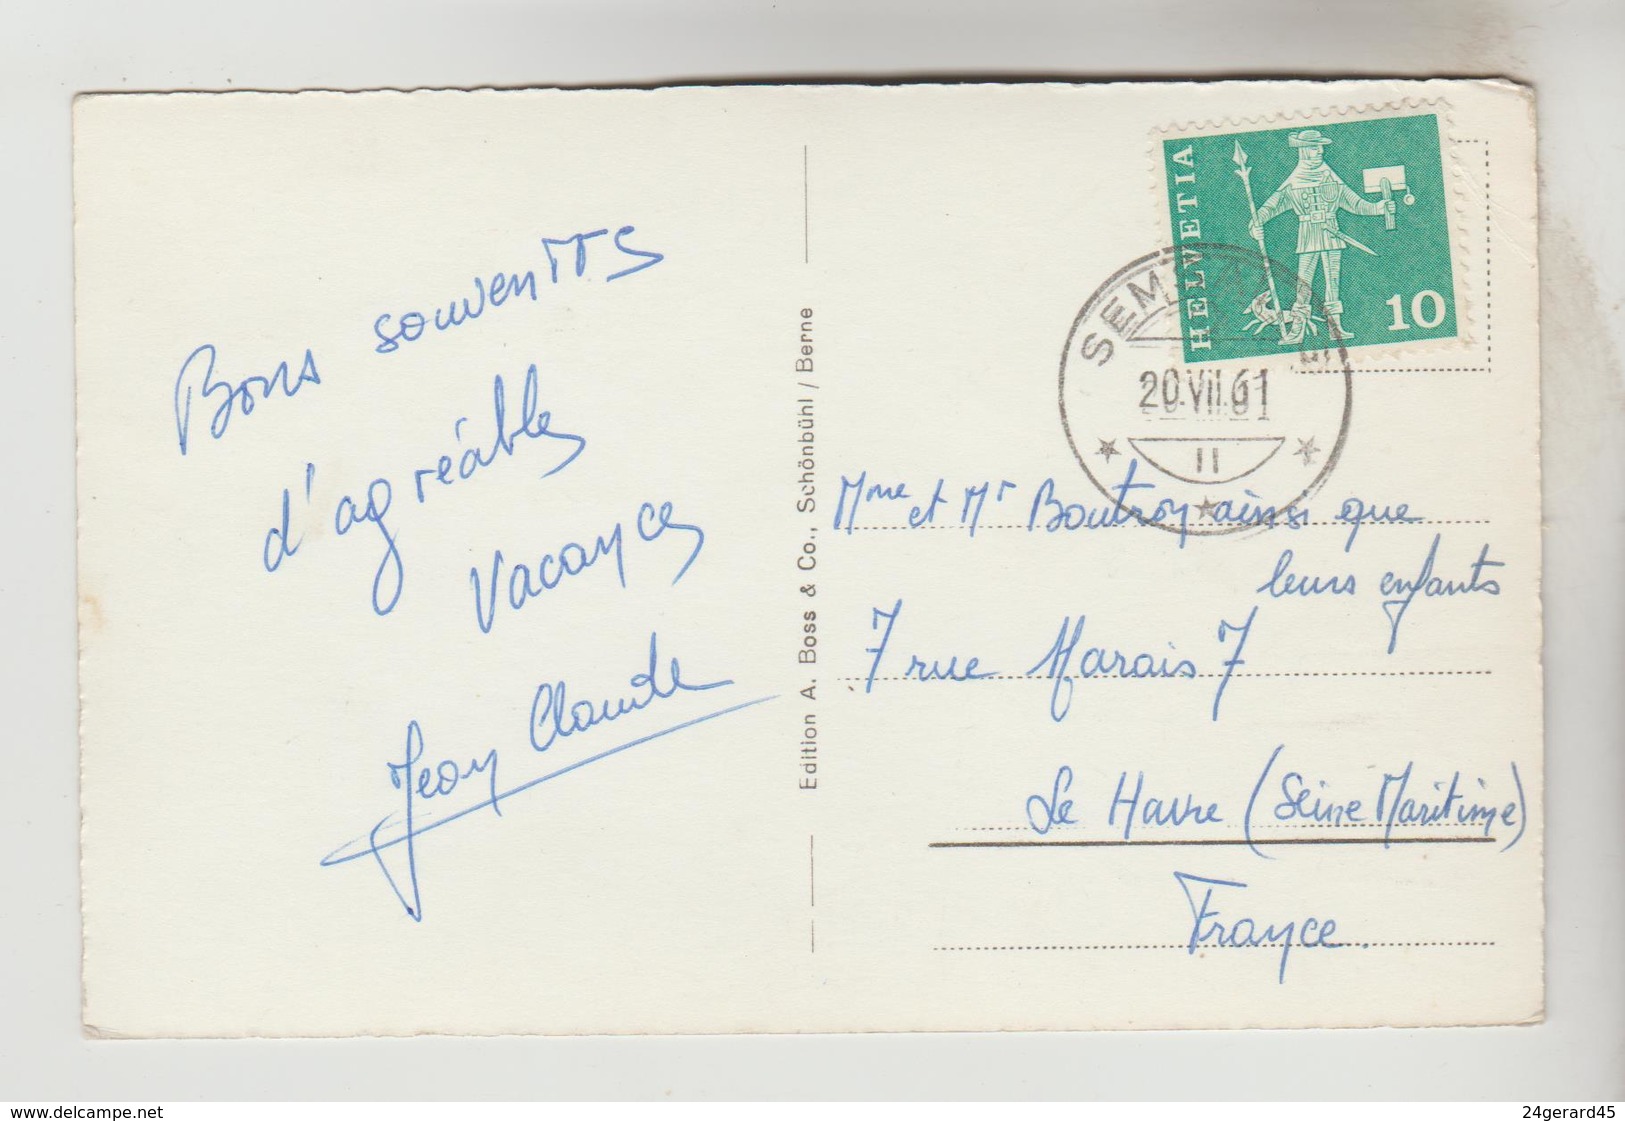 Bons souvenirs
d'agréables
vacances
Jean Claude
Edition A. Boss & Co., Schönbühl / Berne
HELVETIA
10
20.VII.61
11
Mme et Mr Boutroy ainsi que
leurs enfants
7 rue Marais 7
Le Havre (Seine Maritime)
France.
www.delcampe.net
24gerard45